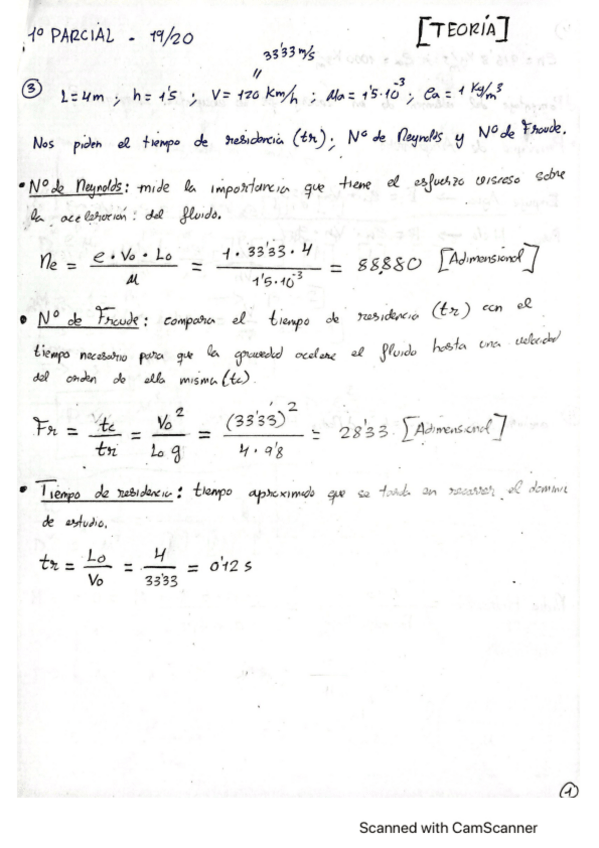 1º PARCIAL - 19/20 [TEORÍA]
33'33 m/s
"
③ L=4m ; h=1'5 ; V=120 Km/h ; Ma=1'5·10^-3 ; ρa=1 Kg/m^3
Nos piden el tiempo de residencia (tr) ; Nº de Reynolds y Nº de Froude.
• Nº de Reynolds: mide la importancia que tiene el esfuerzo viscoso sobre
la aceleración: del fluido.
Re = ρ·Vo·Lo / μ = 1·33'33·4 / 1'5·10^-3 = 88.880 [Adimensional]
• Nº de Froude: compara el tiempo de residencia (tr) con el
tiempo necesario para que la gravedad acelere el fluido hasta una velocidad
del orden de ella misma (tc).
Fr = tc / tr = Vo^2 / Lo g = (33'33)^2 / 4·9'8 = 28'33. [Adimensional]
• Tiempo de residencia: tiempo aproximado que se tarda en recorrer el dominio
de estudio.
tr = Lo / Vo = 4 / 33'33 = 0'12 s
①
Scanned with CamScanner